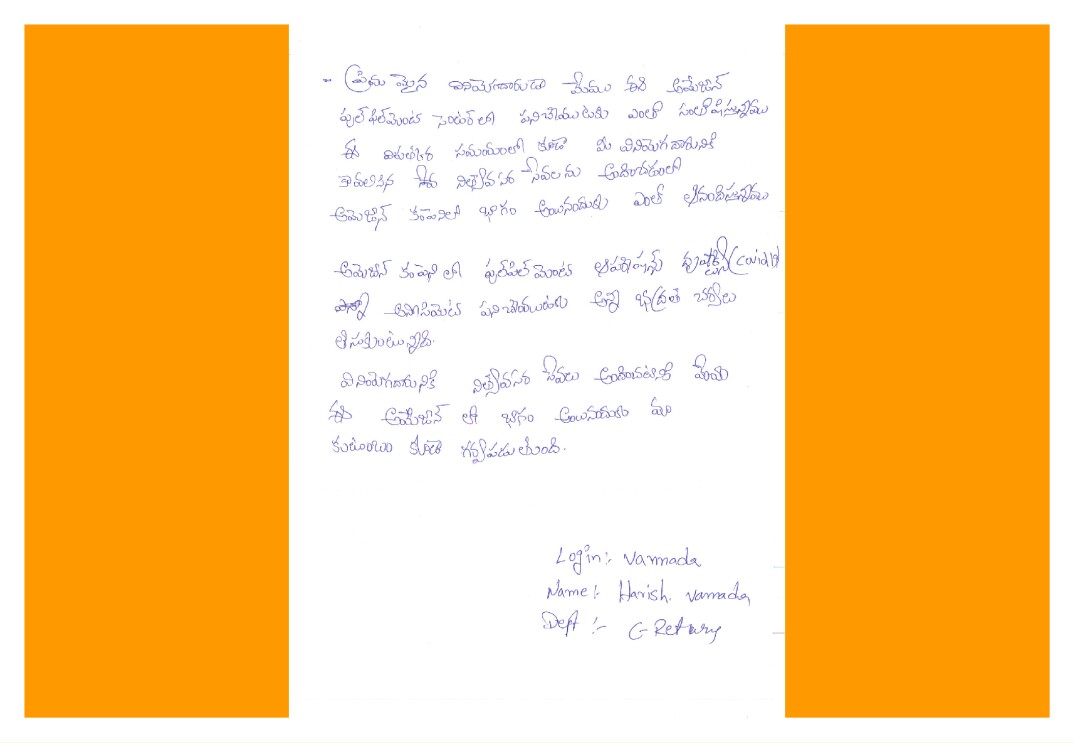 ప్రియ మైన వినియోగదారుడా మేము ఈ అమేజాన్
ఫుల్ ఫిల్‌మెంట్ సెంటర్ లో పనిచేయుటకు ఎంతో సంతోషిస్తున్నాము
ఈ విపత్కర సమయంలో కూడా మీ వినియోగదారునికి
కావలసిన నిత్యావసర సేవలను అందించడంలో
అమెజాన్ కంపెనిలో భాగం అయినందుకు ఎంతో ఆనందిస్తున్నాము
అమెజాన్ కంపెని లో ఫుల్‌ఫిల్ మెంట్ ఆపరేషన్స్ (Covid19)
పనిచేయుటకు అన్ని భద్రత చర్యలు
తీసుకుంటున్నది.
వినియోగదారునికి నిత్యావసర సేవలు అందించటానికి మేము
ఈ అమేజాన్ లో భాగం అయినందుకు మా
కుటుంబం కూడా గర్వపడుతుంది.
Login:- vammada
Name:- Harish. vamada
Dept :-